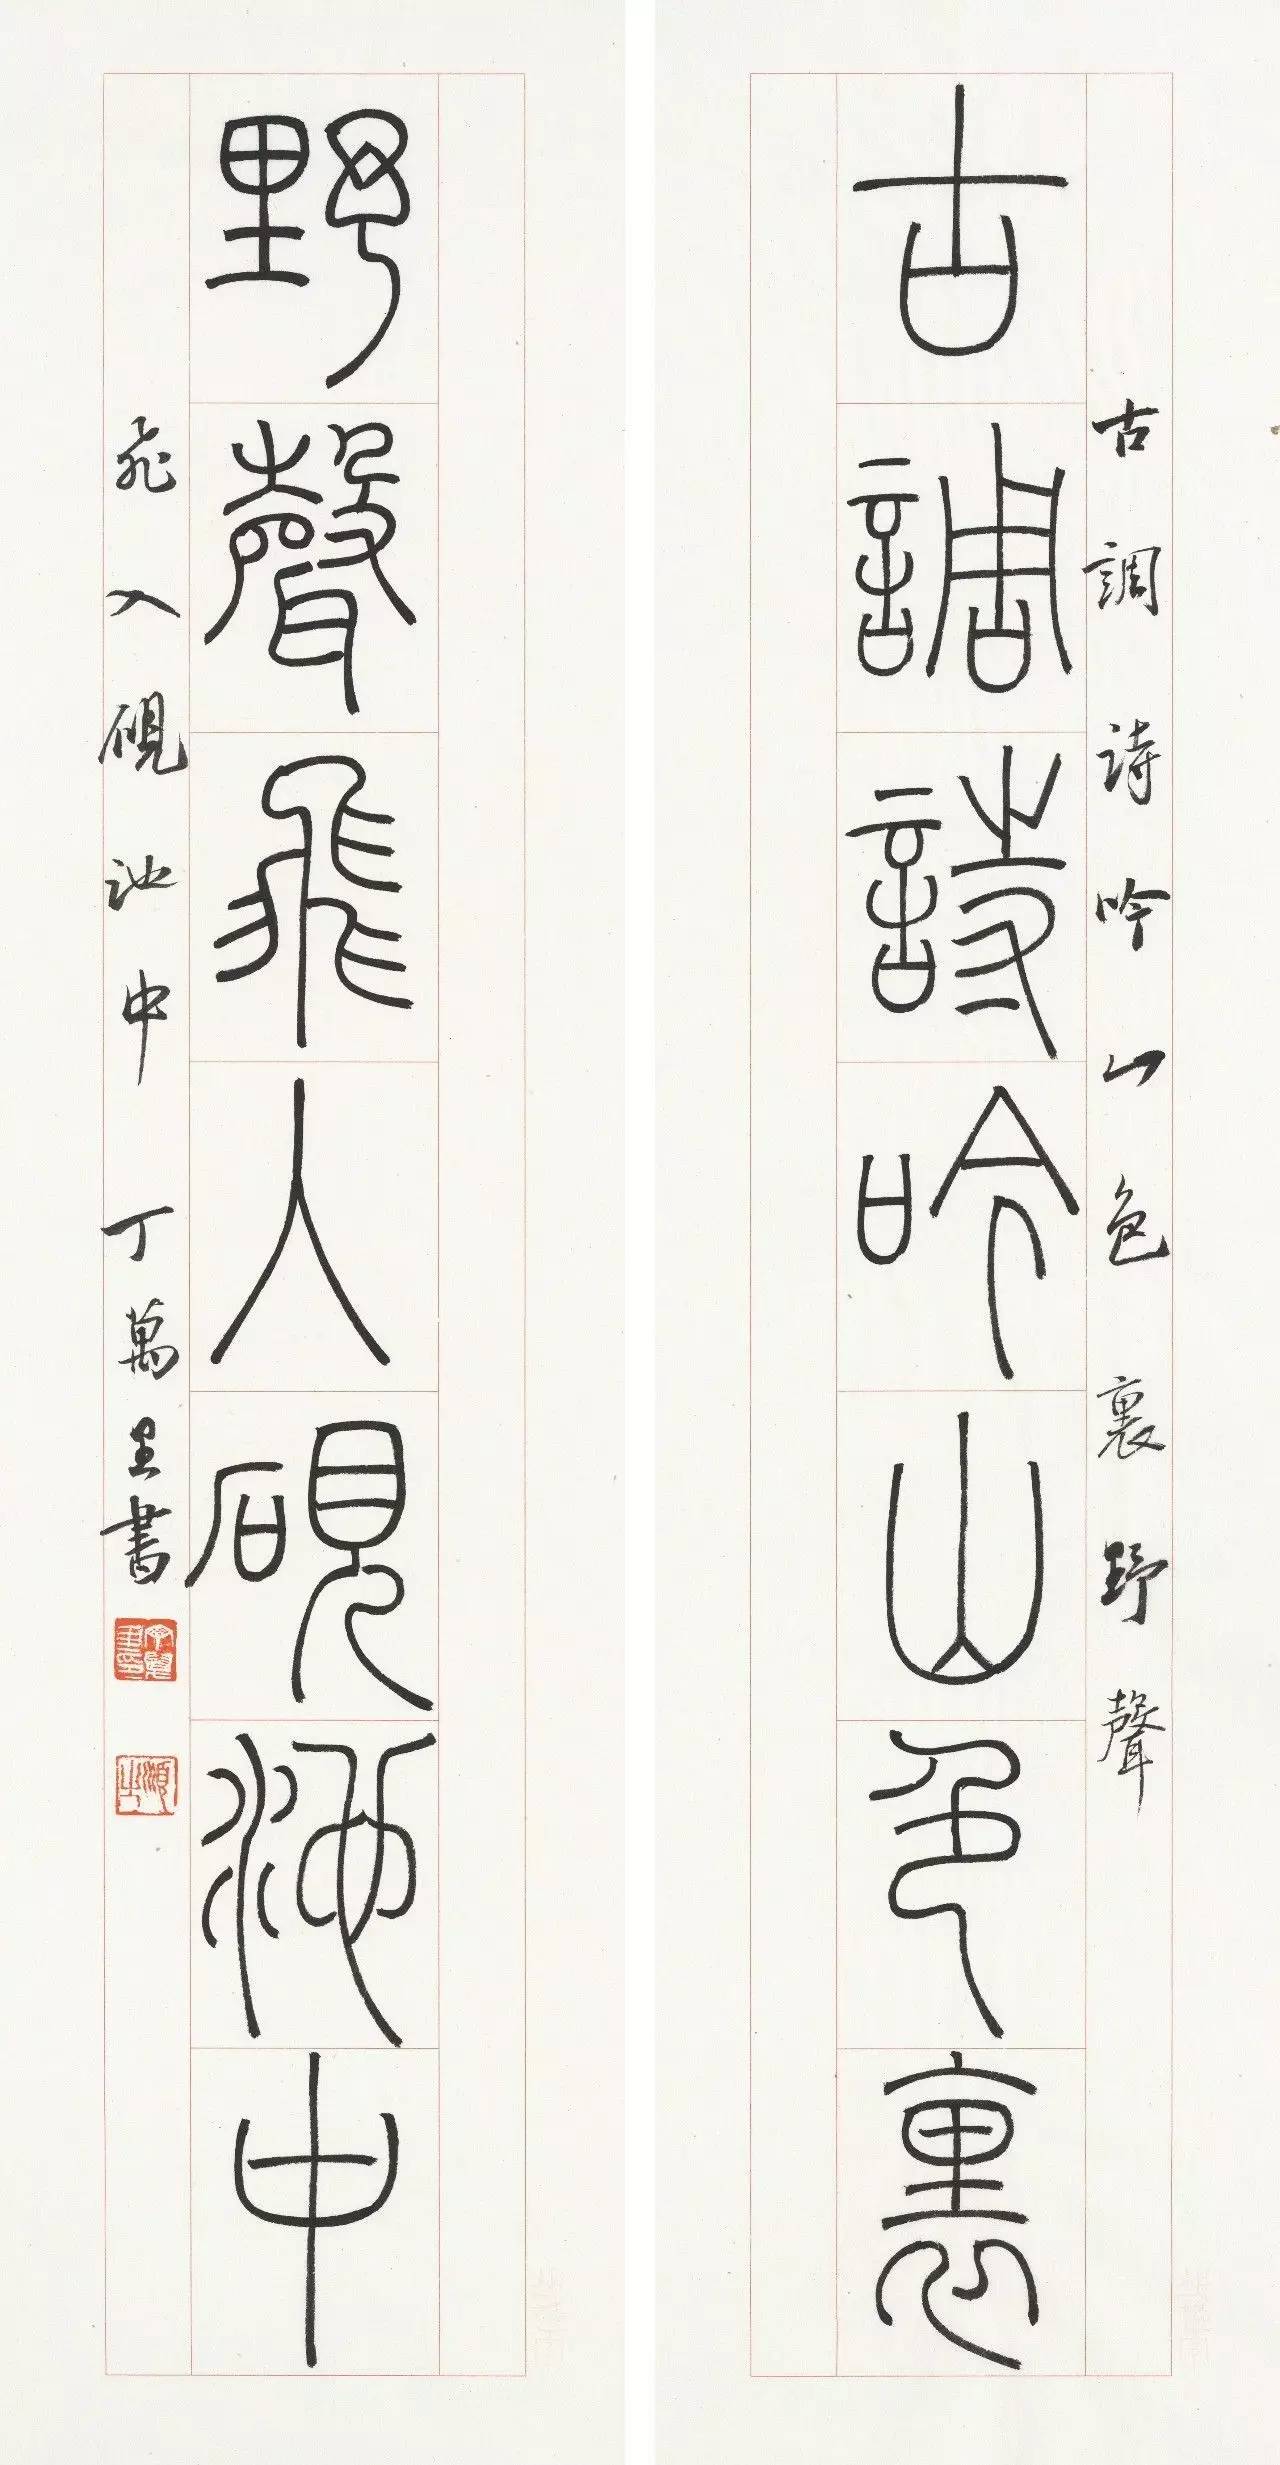 古調詩吟山色裏
古調詩吟山色裏野聲
野聲飛入硯池中
飛入硯池中 丁萬里書